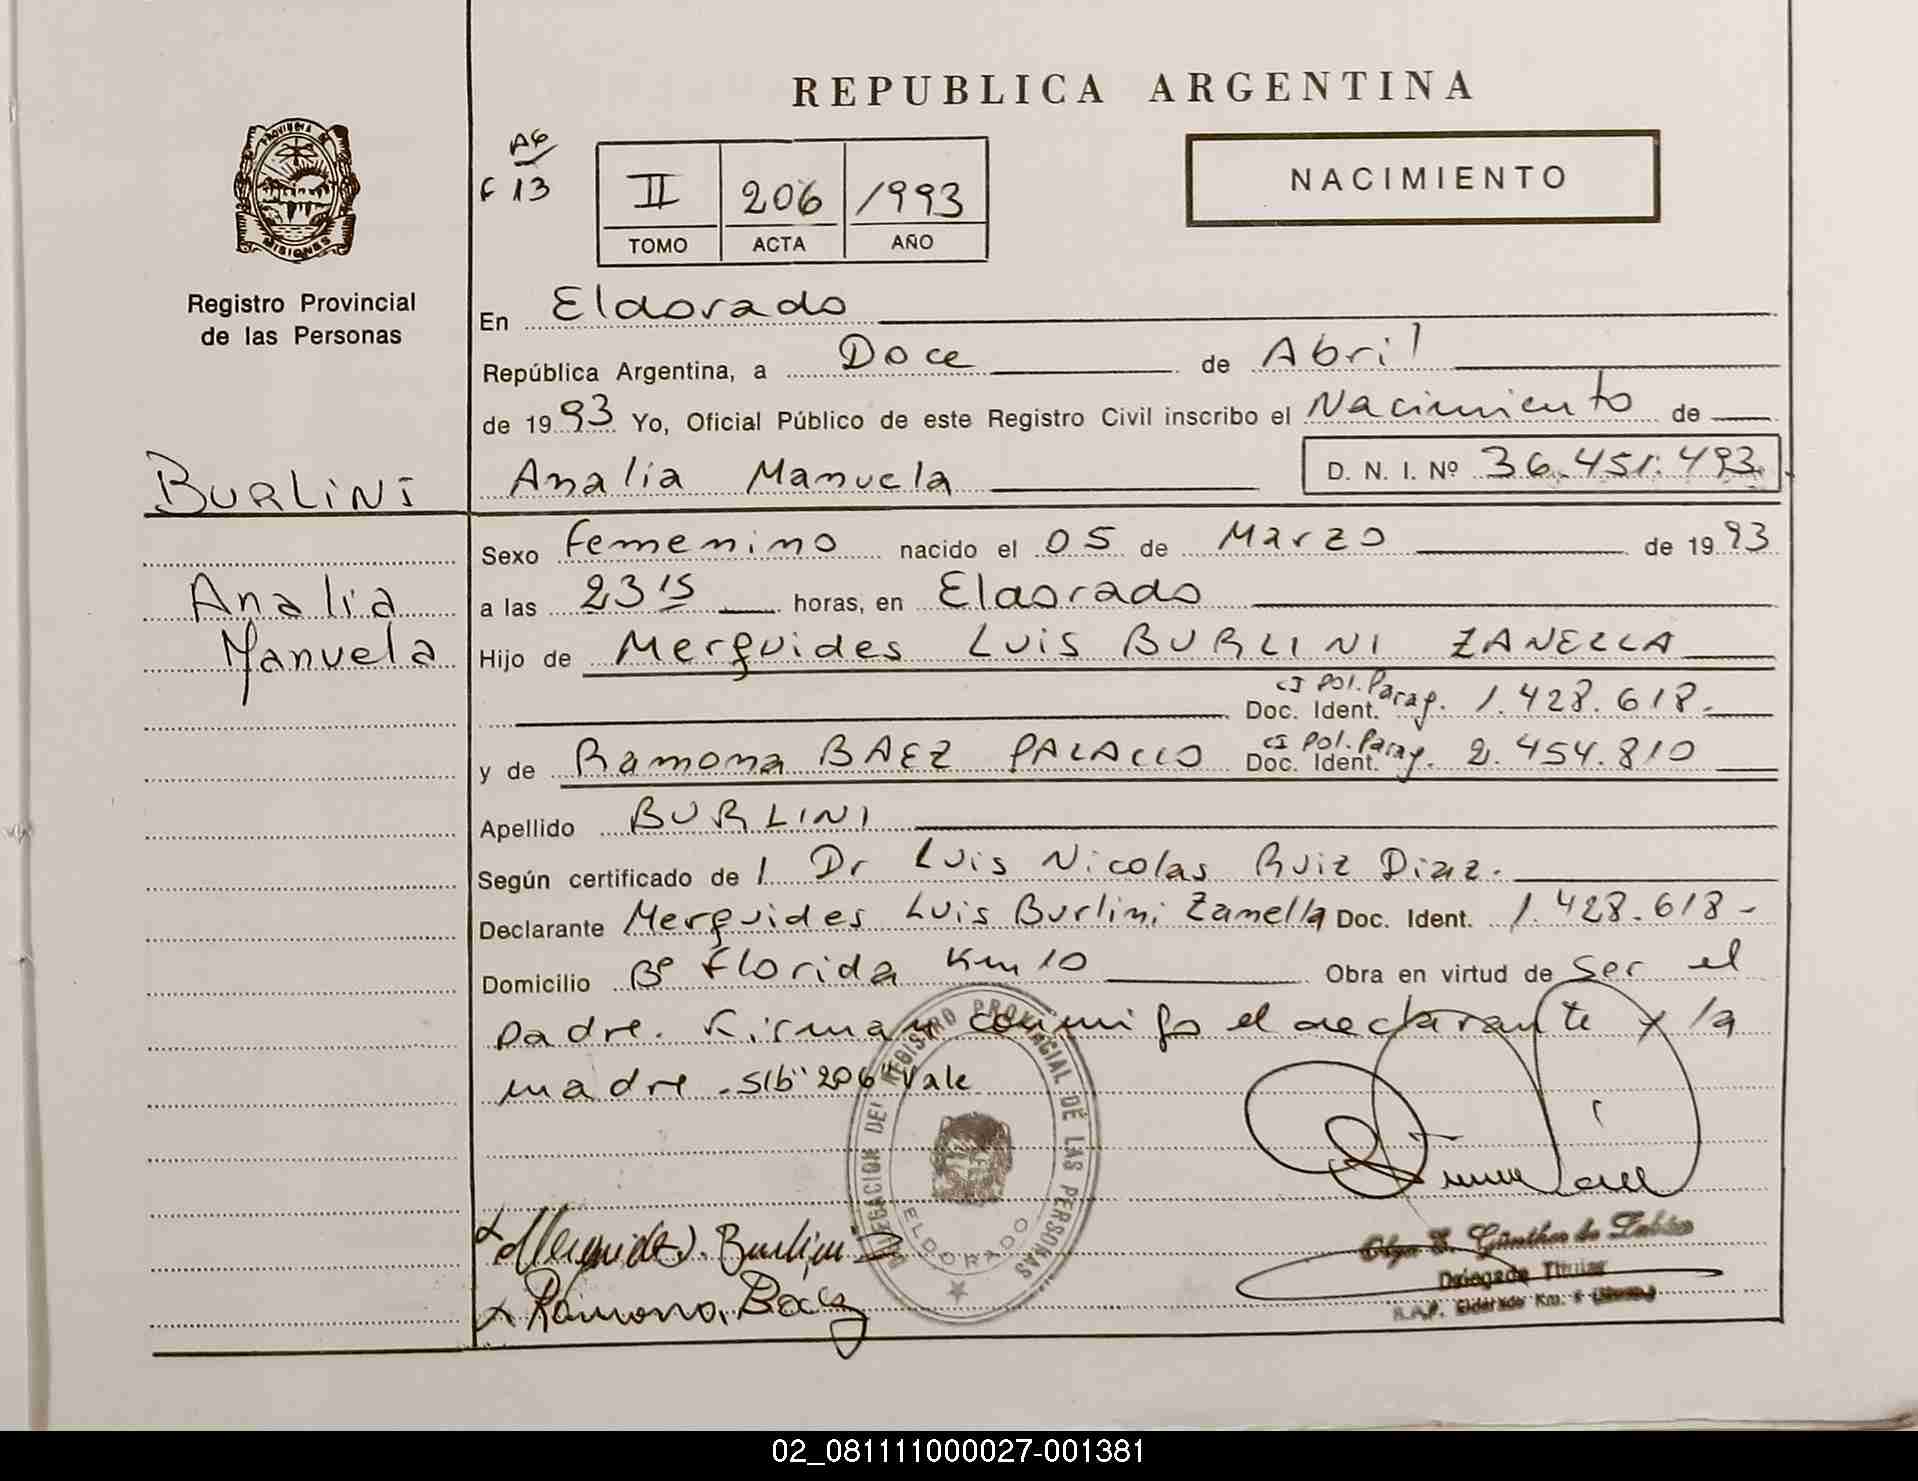 REPUBLICA ARGENTINA
PROVINCIA DE
MISIONES
Registro Provincial
de las Personas
A6
F 13
II 206 1993
TOMO ACTA AÑO
NACIMIENTO
En Eldorado
República Argentina, a Doce de Abril
de 1993 Yo, Oficial Público de este Registro Civil inscribo el Nacimiento de
BURLINI
Analia Manuela D. N. I. Nº 36.451.493
Sexo femenino nacido el 05 de Marzo de 1993
Analia
Manuela
a las 23 15 horas, en Eldorado
Hijo de Merguides Luis BURLINI ZANELLA
CI Pol. Parag.
Doc. Ident. 1.428.618.
y de Ramona BAEZ PALACIO CI Pol. Parag. Doc. Ident. 2.454.810
Apellido BURLINI
Según certificado de 1 Dr Luis Nicolas Ruiz Diaz.
Declarante Merguides Luis Burlini Zanella Doc. Ident. 1.428.618-
Domicilio Bº Florida Km 10 Obra en virtud de ser el
padre. Firman conmigo el declarante y la
madre. S/b "206" Vale
DELEGACION DEL REGISTRO PROVINCIAL DE LAS PERSONAS
ELDORADO
Burlini
Ramona Baez
Olga Günther de
Delegada Titular
R.A.P. Eldorado Km.
02_081111000027-001381